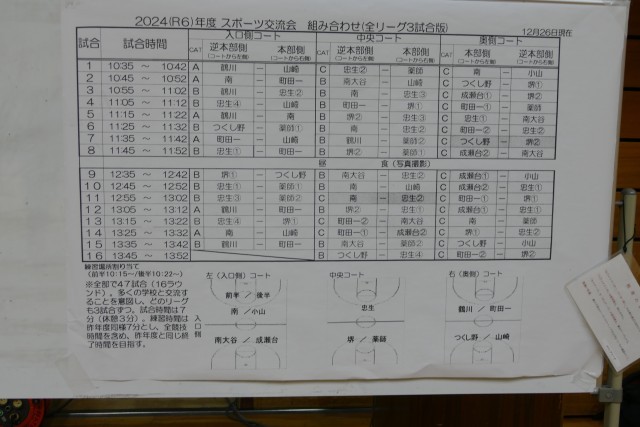 2024(R6)年度 スポーツ交流会 組み合わせ(全リーグ3試合版)
12月26日現在
試合 試合時間 入口側コート 中央コート 奥側コート
CAT 逆本部側 (コートから左側) — 本部側 (コートから右側) CAT 逆本部側 (コートから左側) — 本部側 (コートから右側) CAT 逆本部側 (コートから左側) — 本部側 (コートから右側)
1 10:35 ～ 10:42 A 鶴川 — 山崎 C 忠生② — 薬師 C 南 — 小山
2 10:45 ～ 10:52 A 南 — 町田一 B 南大谷 — 山崎 C つくし野 — 堺①
3 10:55 ～ 11:02 B 鶴川 — 忠生② B 南 — 忠生③ C 成瀬台① — 堺②
4 11:05 ～ 11:12 B 忠生④ — 山崎 B 町田一 — 堺① C 町田一① — 薬師
5 11:15 ～ 11:22 A 鶴川 — 南 B 堺② — 忠生③ C 忠生① — 南大谷
6 11:25 ～ 11:32 B つくし野 — 薬師① B 南 — 忠生① C 町田一② — 忠生②
7 11:35 ～ 11:42 A 町田一 — 山崎 B 鶴川 — 薬師② C つくし野 — 堺②
8 11:45 ～ 11:52 B 忠生① — 町田一 B 堺② — 薬師② C 成瀬台② — 南大谷
昼 食(写真撮影)
9 12:35 ～ 12:42 B 堺① — つくし野 B 南大谷 — 忠生④ C 成瀬台① — 小山
10 12:45 ～ 12:52 B 忠生① — 薬師① B 南 — 山崎 C 成瀬台② — 忠生①
11 12:55 ～ 13:02 B 忠生③ — 薬師② C 南 — 忠生② C 町田一① — 堺①
12 13:05 ～ 13:12 A 鶴川 — 町田一 B 堺② — 忠生① C 成瀬台① — 忠生①
13 13:15 ～ 13:22 B 忠生④ — 堺① C 町田一② — 南大谷 C 南 — 薬師
14 13:25 ～ 13:32 A 南 — 山崎 C 町田一② — 成瀬台② C 忠生② — 堺①
15 13:35 ～ 13:42 B 鶴川 — 町田一 B 南 — 薬師② C つくし野 — 小山
16 13:45 ～ 13:52 B つくし野 — 忠生④ C 成瀬台① — 堺②
練習場所割り当て
(前半10:15～/後半10:22～)
※全部で47試合(16ラウ
ンド)。多くの学校と交流す
ることを意図し、どのリーグ
も3試合ずつ。試合時間は7
分(休憩3分)。練習時間は
昨年度同様7分とし、全競技
時間を含め、昨年度と同じ終
了時間を目指す。
入口側
左(入口側)コート
前半 / 後半
南 / 小山
南大谷 / 成瀬台
中央コート
忠生
堺 / 薬師
右(奥側)コート
鶴川 / 町田一
つくし野 / 山崎